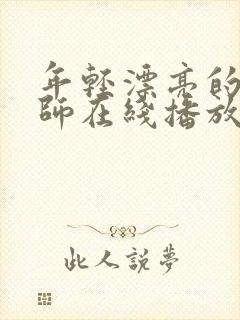 年輕漂亮的
師在綫播放
此人説夢